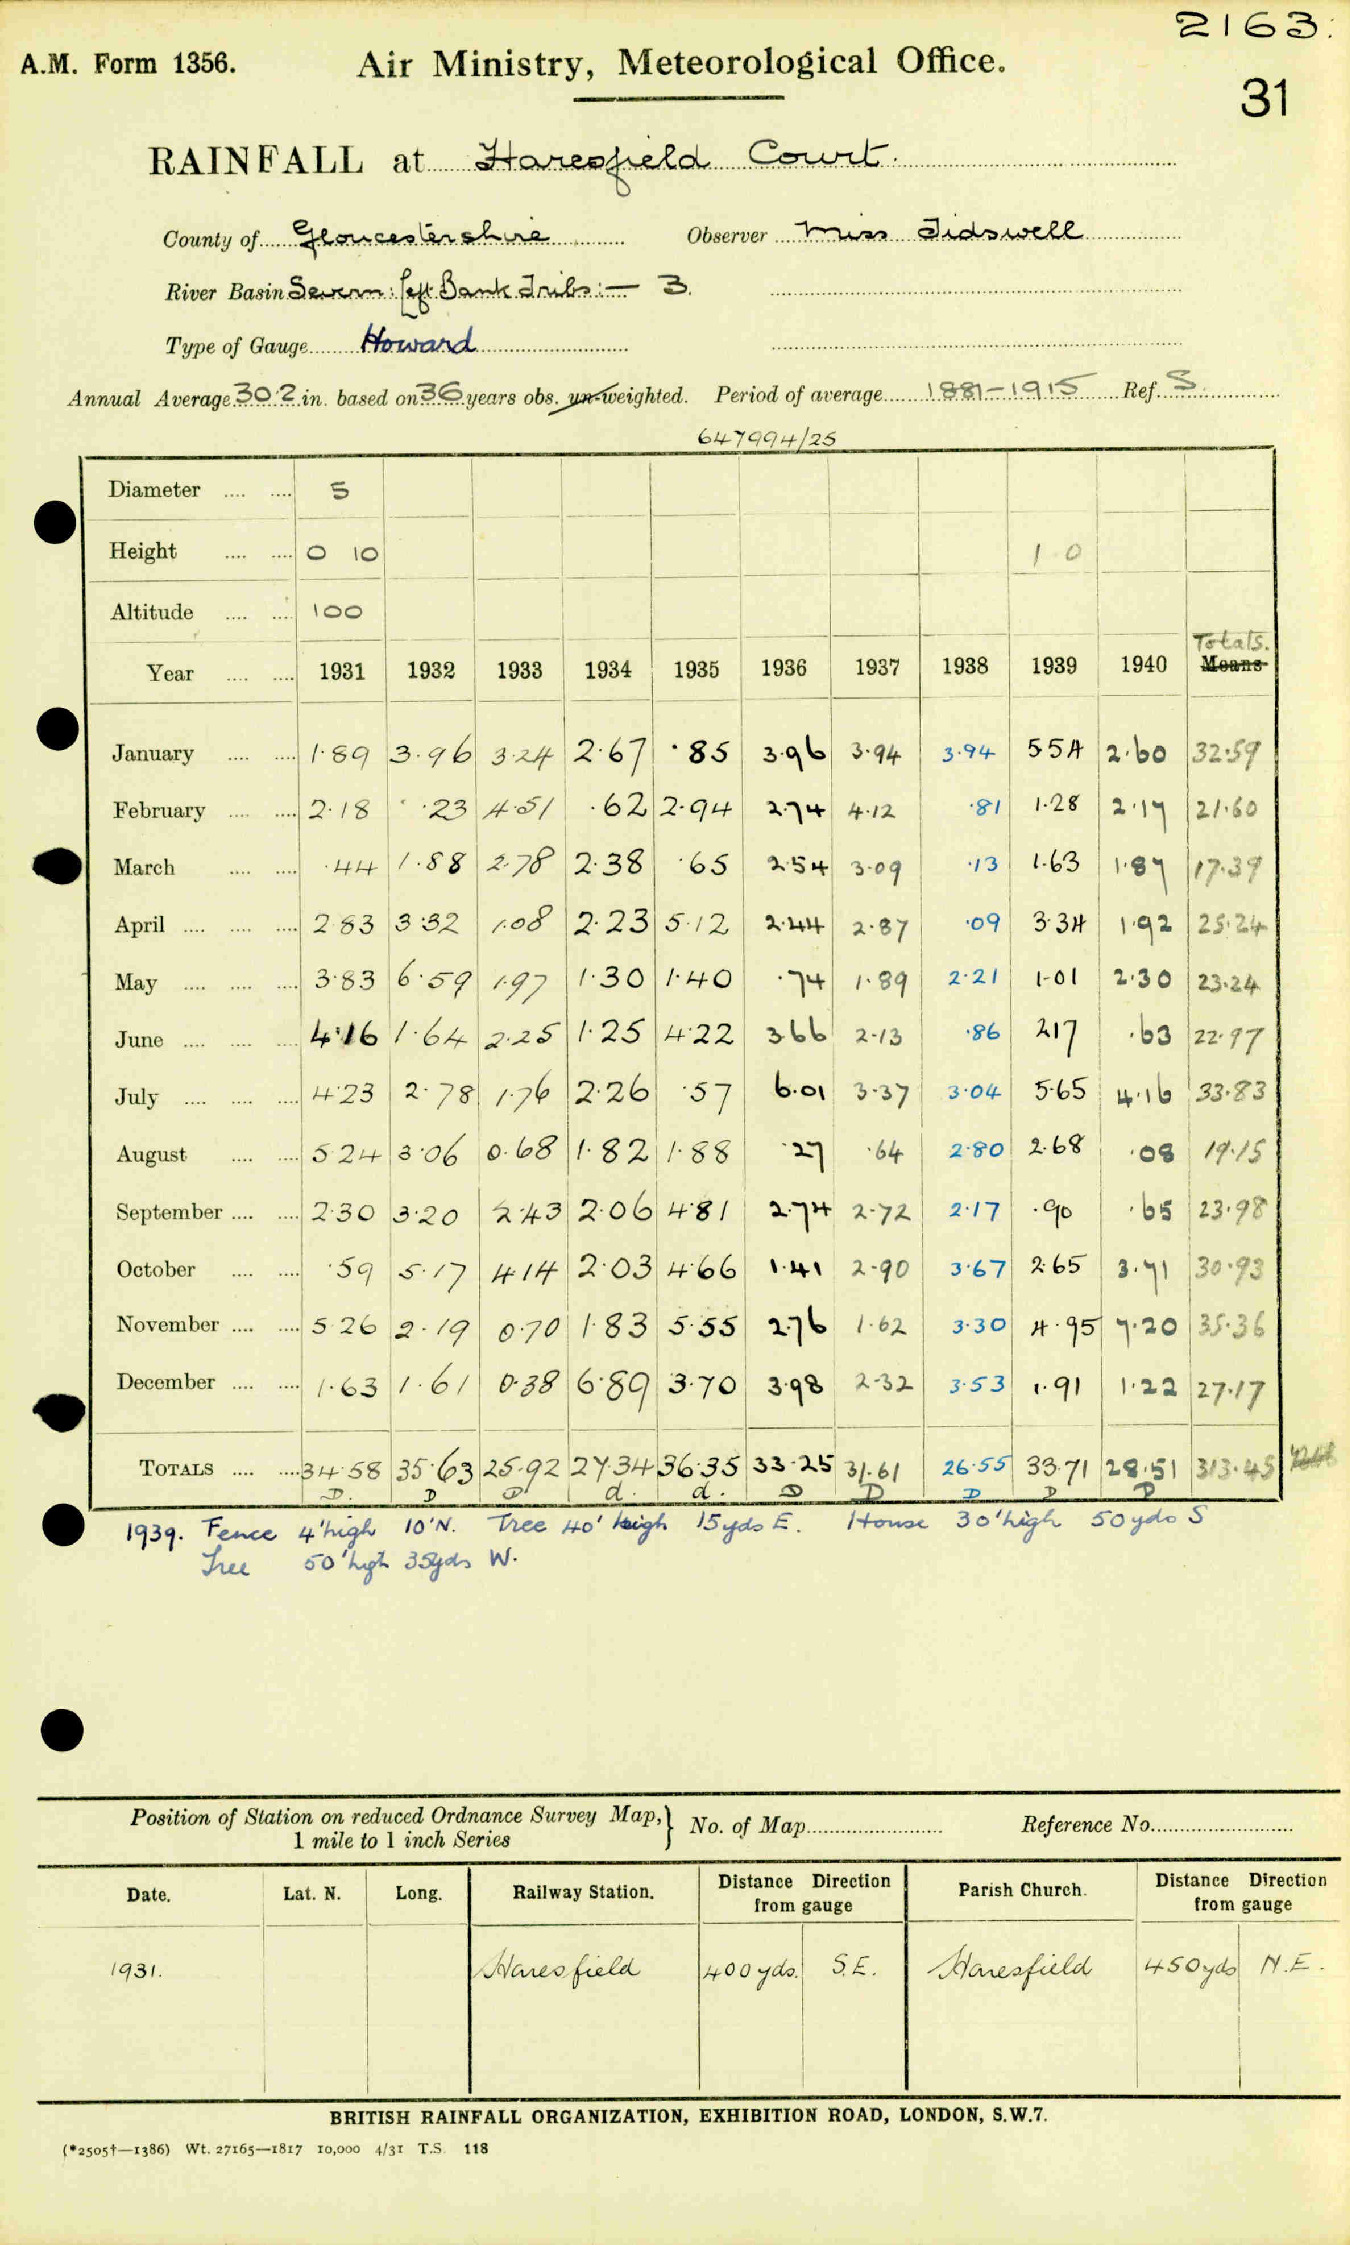 2163.
A.M. Form 1356. Air Ministry, Meteorological Office.
31
RAINFALL at Haresfield Court.
County of Gloucestershire Observer Miss Tidswell
River Basin Severn: Left Bank Tribs:— 3.
Type of Gauge Howard
Annual Average 30.2 in. based on 36 years obs. un-weighted. Period of average 1881-1915 Ref. S.
647994/25
Diameter .... .... 5
Height .... .... 0 10 1 0
Altitude .... .... 100
Totals.
Year .... .... 1931 1932 1933 1934 1935 1936 1937 1938 1939 1940 Means
January .... .... 1.89 3.96 3.24 2.67 .85 3.96 3.94 3.94 5.54 2.60 32.59
February .... .... 2.18 .23 4.51 .62 2.94 2.74 4.12 .81 1.28 2.17 21.60
March .... .... .44 1.88 2.78 2.38 .65 2.54 3.09 .13 1.63 1.87 17.39
April .... .... .... 2.83 3.32 1.08 2.23 5.12 2.44 2.87 .09 3.34 1.92 25.24
May .... .... .... 3.83 6.59 1.97 1.30 1.40 .74 1.89 2.21 1.01 2.30 23.24
June .... .... .... 4.16 1.64 2.25 1.25 4.22 3.66 2.13 .86 2.17 .63 22.97
July .... .... .... 4.23 2.78 1.76 2.26 .57 6.01 3.37 3.04 5.65 4.16 33.83
August .... .... 5.24 3.06 0.68 1.82 1.88 .27 .64 2.80 2.68 .08 19.15
September .... .... 2.30 3.20 2.43 2.06 4.81 2.74 2.72 2.17 .90 .65 23.98
October .... .... .59 5.17 4.14 2.03 4.66 1.41 2.90 3.67 2.65 3.71 30.93
November .... .... 5.26 2.19 0.70 1.83 5.55 2.76 1.62 3.30 4.95 7.20 35.36
December .... .... 1.63 1.61 0.38 6.89 3.70 3.98 2.32 3.53 1.91 1.22 27.17
TOTALS .... .... 34.58 35.63 25.92 27.34 36.35 33.25 31.61 26.55 33.71 28.51 313.45
D. D D d. d. D D D D D
1939. Fence 4' high 10' N. Tree 40' high 15 yds E. House 30' high 50 yds S
Tree 50' high 35 yds W.
Position of Station on reduced Ordnance Survey Map,} No. of Map Reference No.
1 mile to 1 inch Series
Date. Lat. N. Long. Railway Station. Distance Direction from gauge Parish Church. Distance Direction from gauge
1931. Haresfield 400 yds. S.E. Haresfield 450 yds N.E.
BRITISH RAINFALL ORGANIZATION, EXHIBITION ROAD, LONDON, S.W.7.
(*2505†—1386) Wt. 27165—1817 10,000 4/31 T.S. 118